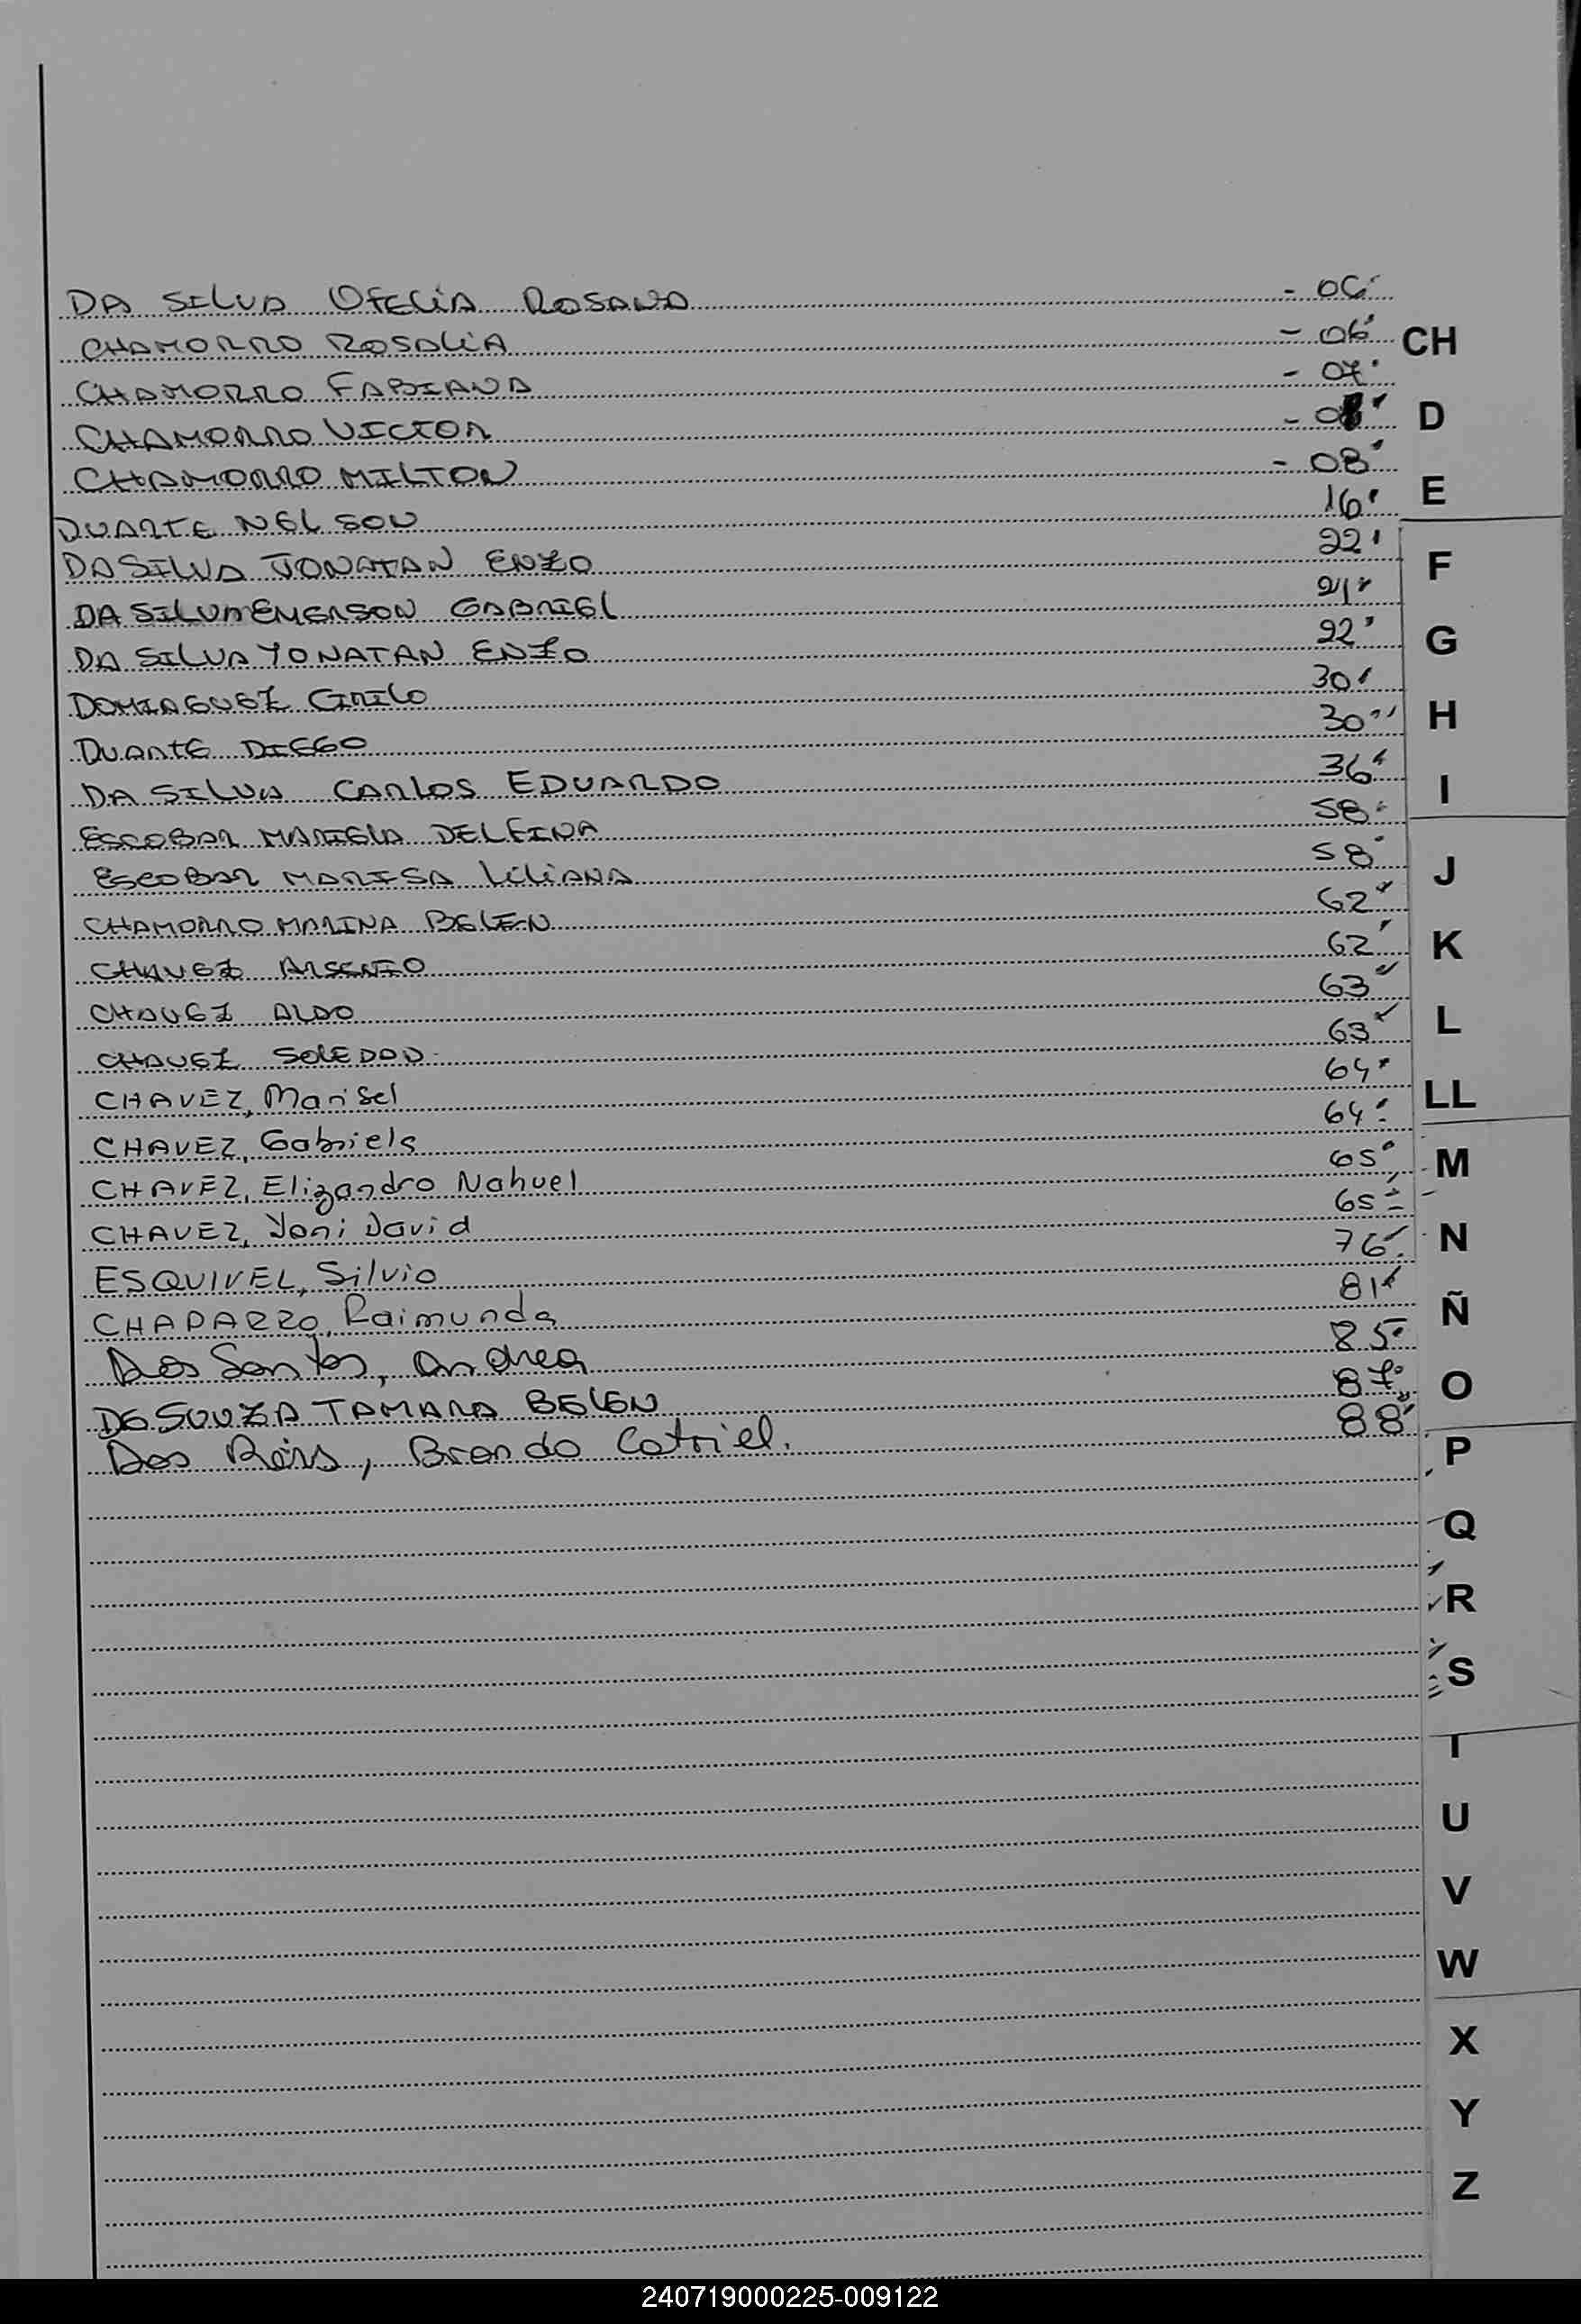 DA SILVA OFELIA ROSANA - 06
CHAMORRO ROSALIA - 06
CHAMORRO FABIANA - 07
CHAMORRO VICTOR - 08
CHAMORRO MILTON - 08
DUARTE NELSON 16
DA SILVA JONATAN ENZO 22
DA SILVA EMERSON GABRIEL 21
DA SILVA YONATAN ENZO 22
DOMINGUEZ CIRILO 30
DUARTE DIEGO 30
DA SILVA CARLOS EDUARDO 36
ESCOBAR MARIELA DELFINA 58
ESCOBAR MARISA LILIANA 58
CHAMORRO MARINA BELEN 62
CHAVEZ ARSENIO 62
CHAVEZ ALDO 63
CHAVEZ SOLEDAD 63
CHAVEZ, Marisel 64
CHAVEZ, Gabriela 64
CHAVEZ, Elizandro Nahuel 65
CHAVEZ, Yoni David 65
ESQUIVEL, Silvio 76
CHAPARRO, Raimunda 81
Dos Santos, Andrea 85
DE SOUZA TAMARA BELEN 87
Dos Reis, Brando Catriel. 88
CH
D
E
F
G
H
I
J
K
L
LL
M
N
Ñ
O
P
Q
R
S
T
U
V
W
X
Y
Z
240719000225-009122